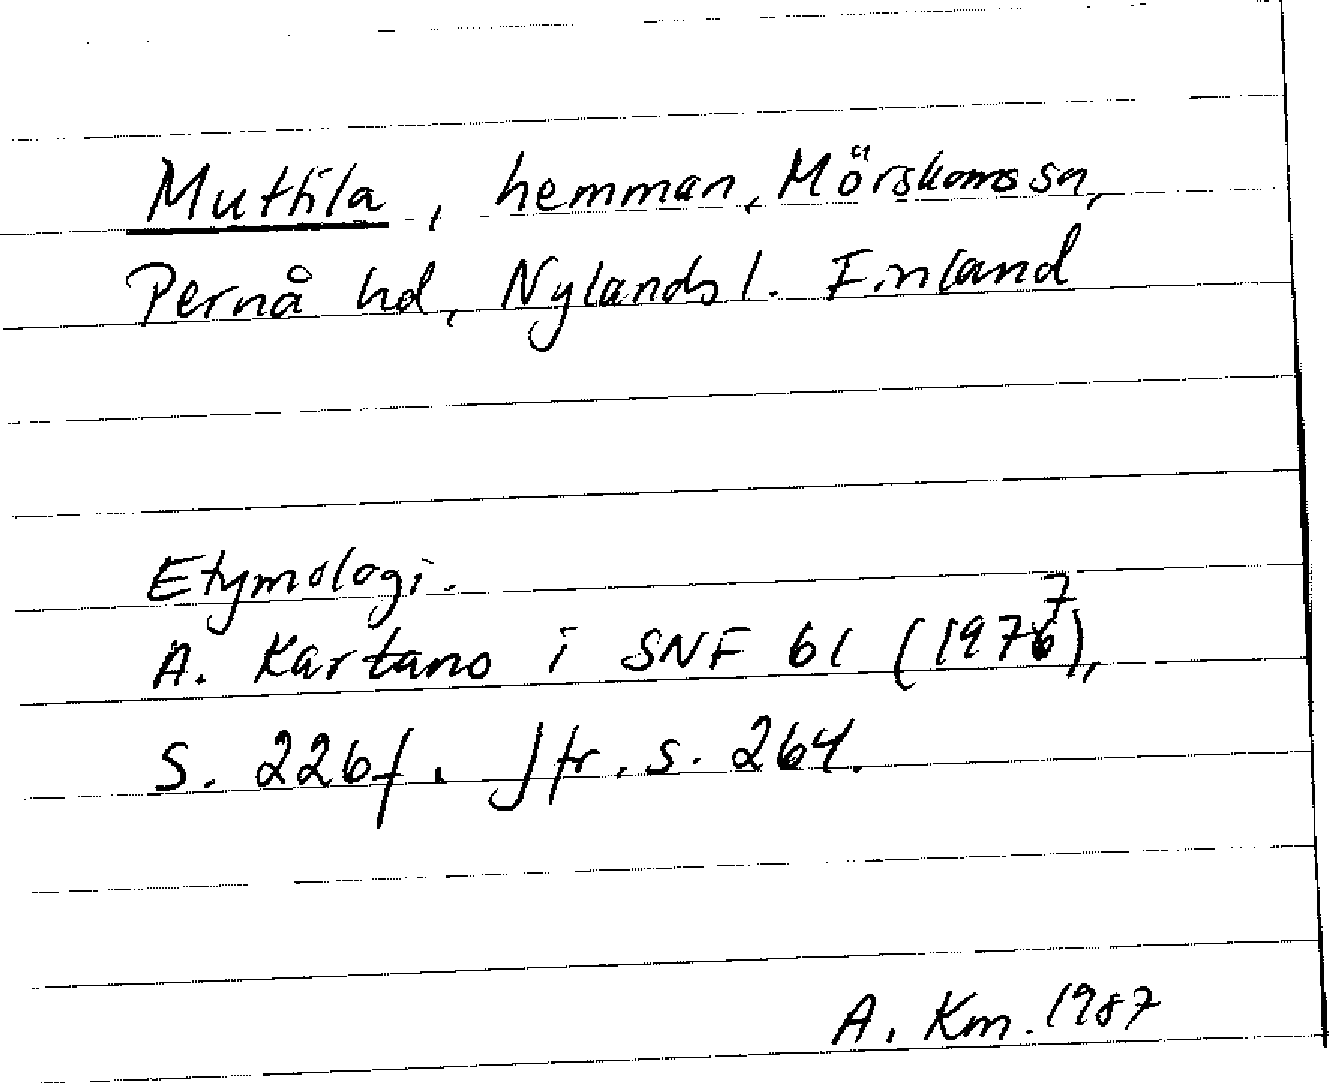 Muttila, hemman, Mörskoms sn,
Pernå hd, Nylands l. Finland
Etymologi.
A. Kartano i SNF 61 (1977),
S. 226f. Jfr. s. 264.
A. Km. 1987